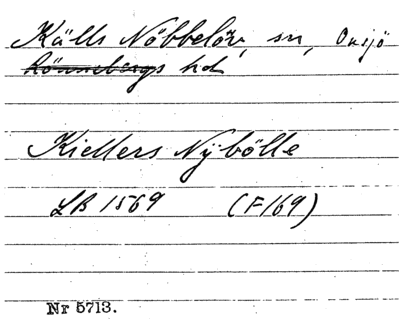 Källs Nöbbelöv, sn, Onsjö
Rönnebergs hd
Kiellers Nÿbölle
LB 1569 (F169)
Nr 5713.